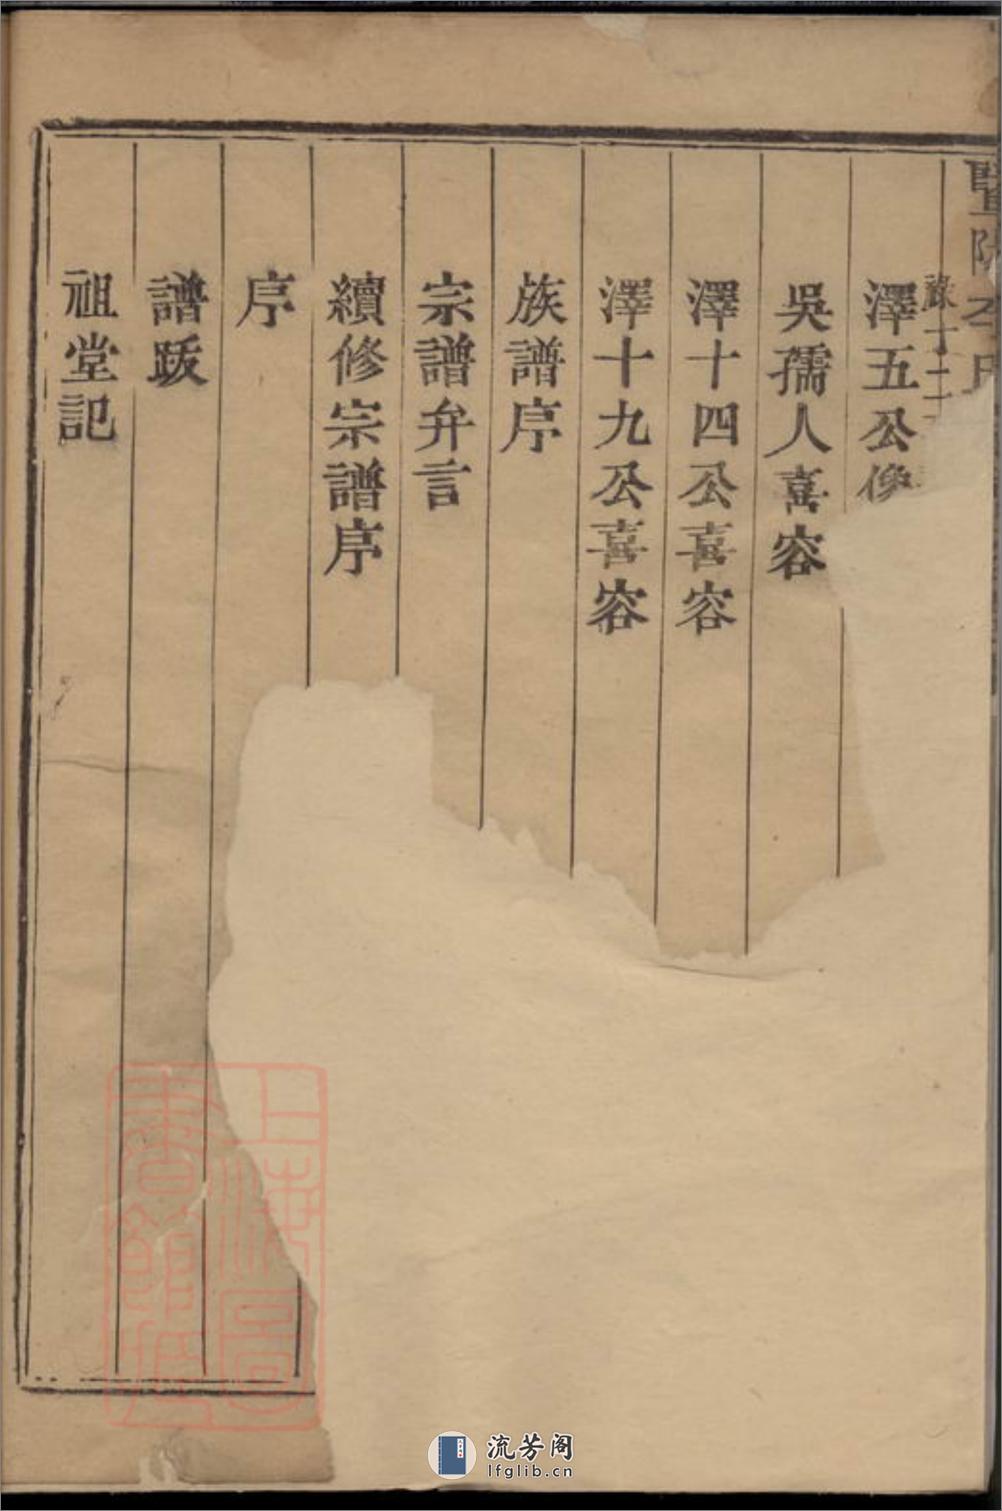 暨陽李氏
澤五公像
吳孺人喜容
澤十四公喜容
澤十九公喜容
族譜序
宗譜弁言
續修宗譜序
序
譜跋
祖堂記
上海圖
書館藏
流芳阁
lfglib.cn